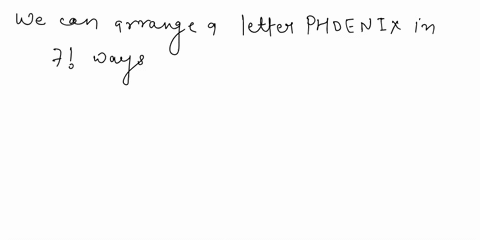 We can arrange a letter PHOENIX in
7! ways